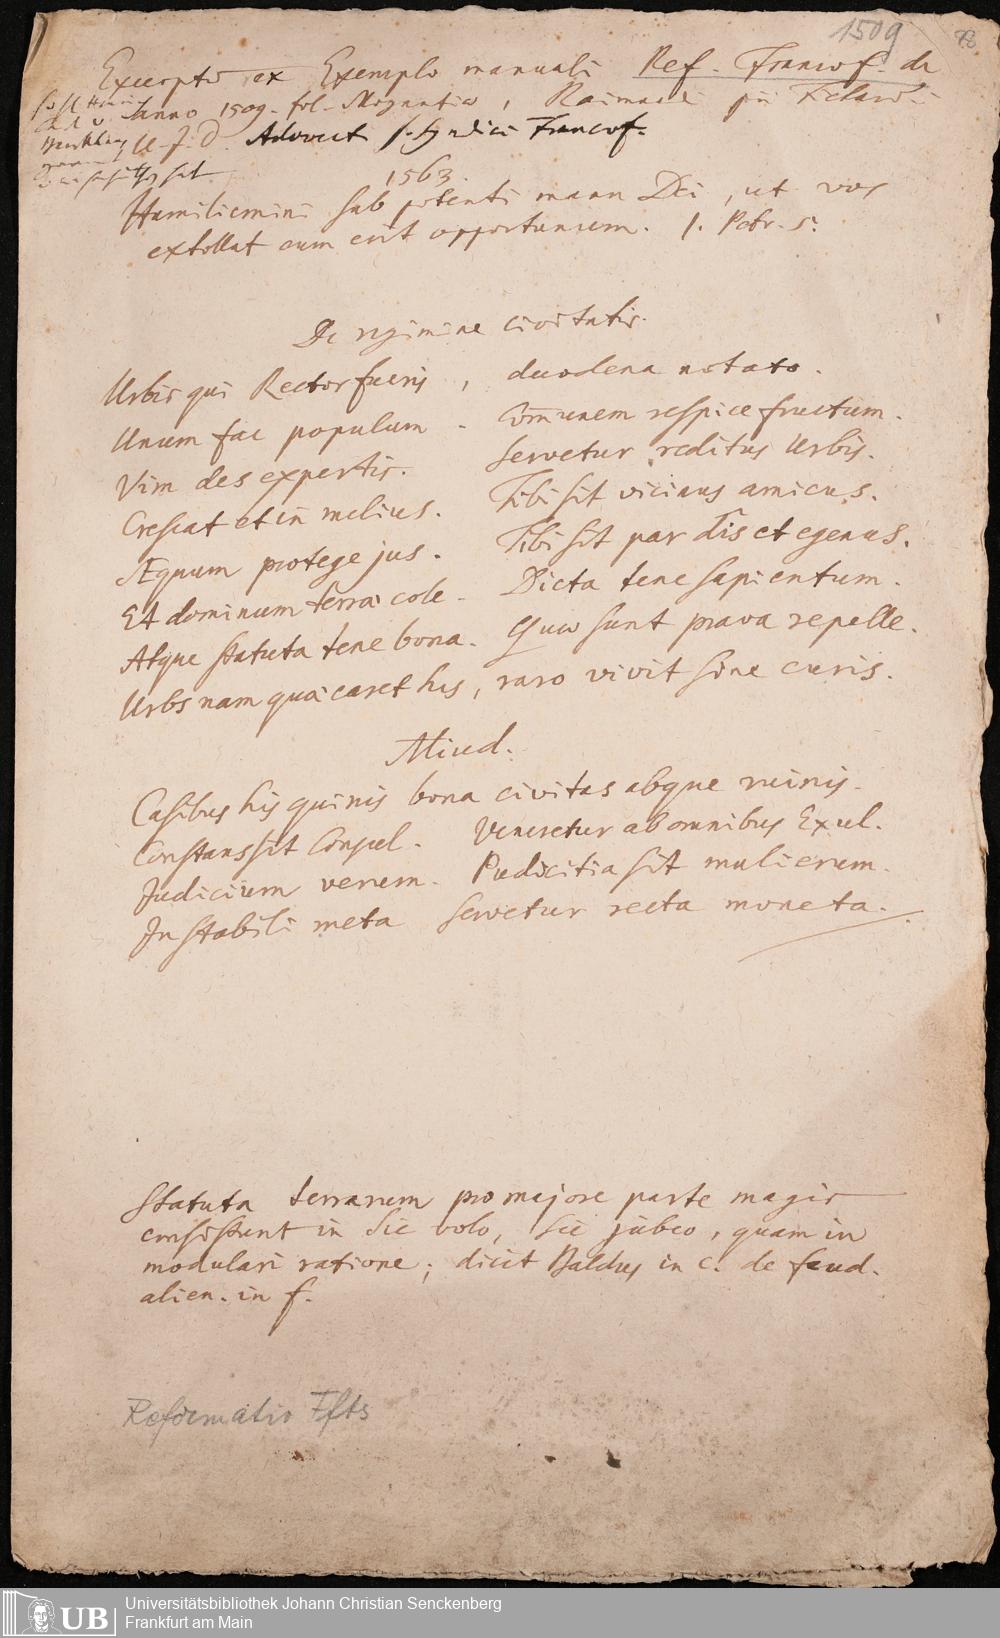 1509
Excerpta ex Exemplo manuali Ref. Francof. de
Anno 1509. fol. Moguntiae, Raimundi pii Fichardi
U. J. D. Advocat Syndici Francof.
1563.
Humiliemini sub potenti manu Dei, ut vos
extollat cum erit opportunum. 1. Petr. 5.
De regimine civitatis.
Urbis qui Rector fueris, duodena notato.
Unum fac populum. Com̄unem respice fructum.
Vim des expertis. Servetur reditus Urbis.
Crescat et in melius. Tibi sit vicinus amicus.
Æquum protege jus. Tibi sit par dis et egenus.
Et dominum terrae cole. Dicta tene sapientum.
Atque statuta tene bona. Quae sunt prava repelle.
Urbs nam quae caret his, raro vivit sine curis.
Aliud.
Casibus his quinis bona civitas absque ruinis.
Constans sit Consul. Veneretur ab omnibus Exul.
Judicium verum. Pudicitia sit mulierum.
In stabili meta servetur recta moneta.
Statuta terrarum pro majore parte magis
consistunt in Sic volo, sic jubeo, quam in
modulari ratione; dicit Baldus in c. de feud.
alien. in f.
Reformatio Ffts
UB
Universitätsbibliothek Johann Christian Senckenberg
Frankfurt am Main